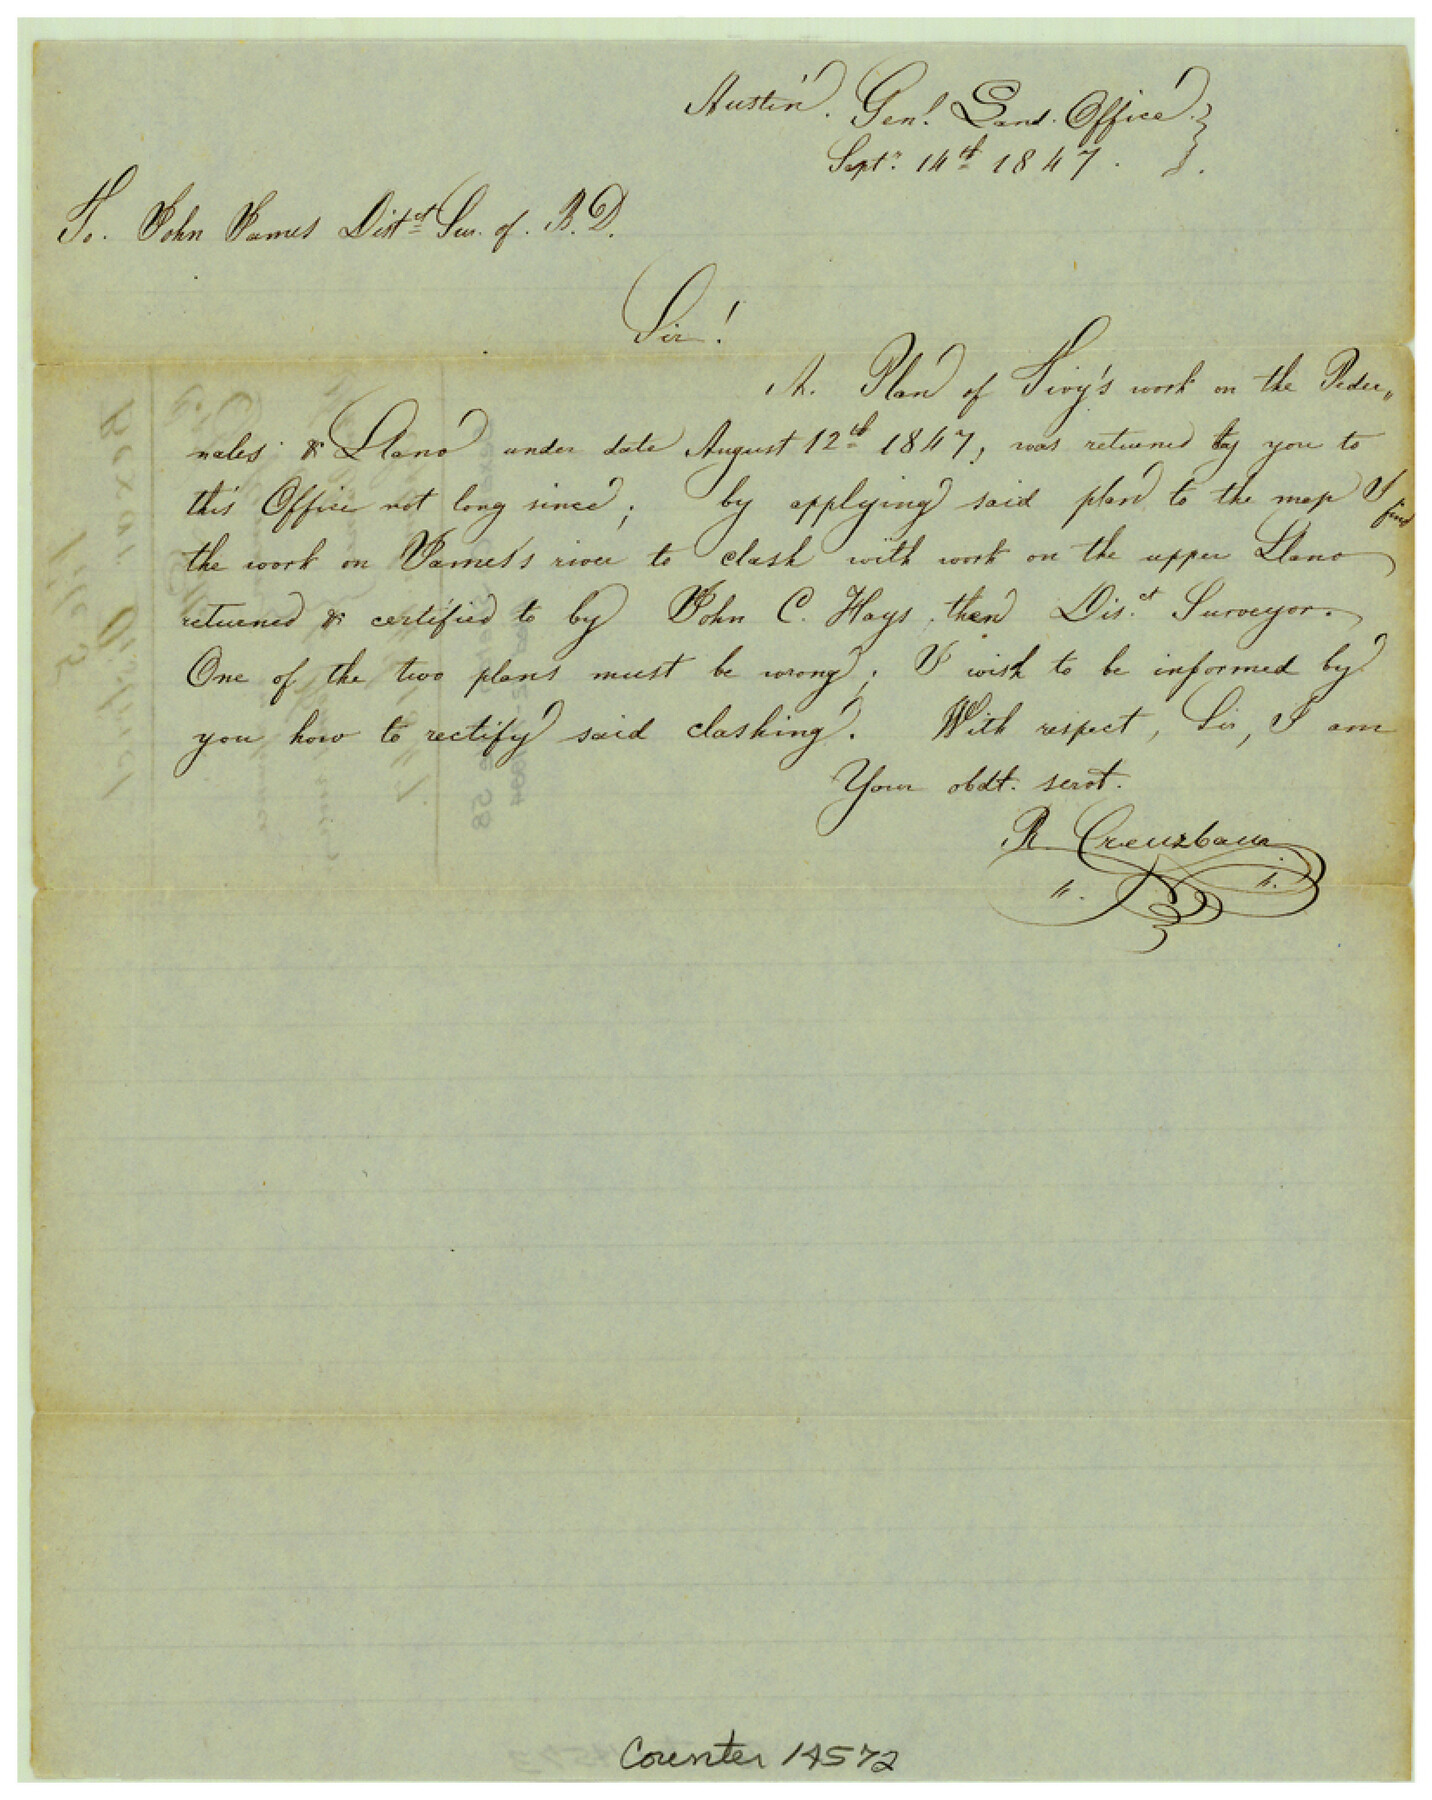 Austin. Genl. Land. Office
Septr. 14th 1847.
To. John James Distct Sur. of. B. D.
Sir!
A. Plan of Tivy's work on the Peder„
nales & Llano under date August 12th 1847, was returned by you to
this Office not long since; by applying said plan to the map I find
the work on James's river to clash with work on the upper Llano
returned & certified to by John C. Hays, then Dis.ct Surveyor.
One of the two plans must be wrong; I wish to be informed by
you how to rectify said clashing. With respect, Sir, I am
Your obdt. servt.
R. Creuzbaur
Counter 14572